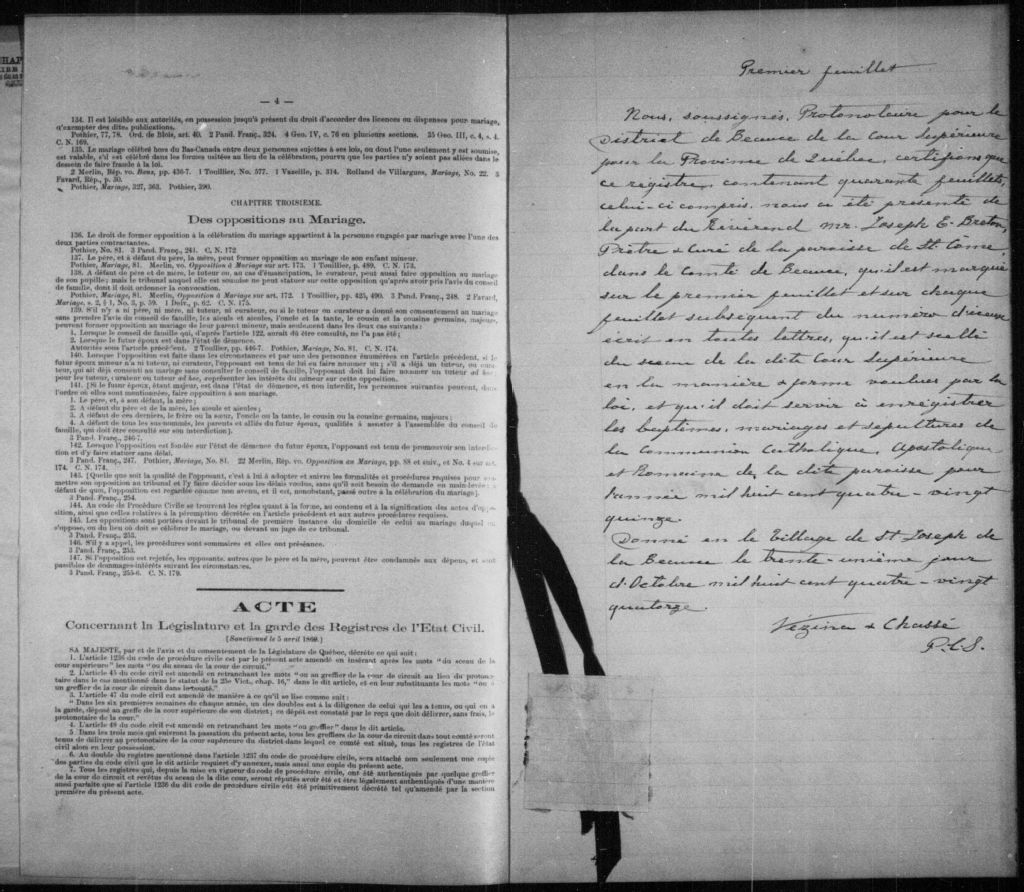 — 4 —
134. Il est loisible aux autorités, en possession jusqu'à présent du droit d'accorder des licences ou dispenses pour mariage,
d'exempter des dites publications.
Pothier, 77, 78. Ord. de Blois, art. 40. 2 Pand. Franç., 324. 4 Geo. IV, c. 76 en plusieurs sections. 25 Geo. III, c. 4, s. 4.
C. N. 169.
135. Le mariage célébré hors du Bas-Canada entre deux personnes sujettes à ses lois, ou dont l'une seulement y est soumise,
est valable, s'il est célébré dans les formes usitées au lieu de la célébration, pourvu que les parties n'y soient pas allées dans le
dessein de faire fraude à la loi.
2 Merlin, Rép. vo. Bans, pp. 436-7. 1 Toullier, No. 577. 1 Vazeille, p. 314. Rolland de Villargues, Mariage, No. 22. 3
Favard, Rép., p. 30.
Pothier, Mariage, 327, 363. Pothier, 290.
CHAPITRE TROISIÈME.
Des oppositions au Mariage.
136. Le droit de former opposition à la célébration du mariage appartient à la personne engagée par mariage avec l'une des
deux parties contractantes.
Pothier, No. 81. 3 Pand. Franç., 241. C. N. 172
137. Le père, et à défaut du père, la mère, peut former opposition au mariage de son enfant mineur.
Pothier, Mariage, 81. Merlin, vo. Opposition à Mariage sur art. 173. 1 Toullier, p. 489. C. N. 173.
138. A défaut de père et de mère, le tuteur ou, au cas d'émancipation, le curateur, peut aussi faire opposition au mariage
de son pupille; mais le tribunal auquel elle est soumise ne peut statuer sur cette opposition qu'après avoir pris l'avis du conseil
de famille, dont il doit ordonner la convocation.
Pothier, Mariage, 81. Merlin, Opposition à Mariage sur art. 172. 1 Toullier, pp. 425, 490. 3 Pand. Franç., 248. 2 Favard,
Mariage, s. 2, § 1, No. 3, p. 59. 1 Delv., p. 62. C. N. 175.
139. S'il n'y a ni père, ni mère, ni tuteur, ni curateur, ou si le tuteur ou curateur a donné son consentement au mariage
sans prendre l'avis du conseil de famille, les aïeuls et aïeules, l'oncle et la tante, le cousin et la cousine germains, majeurs,
peuvent former opposition au mariage de leur parent mineur, mais seulement dans les deux cas suivants:
1. Lorsque le conseil de famille qui, d'après l'article 122, aurait dû être consulté, ne l'a pas été;
2. Lorsque le futur époux est dans l'état de démence.
Autorités sous l'article précédent. 2 Toullier, pp. 446-7. Pothier, Mariage, No. 81. C. N. 174.
140. Lorsque l'opposition est faite dans les circonstances et par une des personnes énumérées en l'article précédent, si le
futur époux mineur n'a ni tuteur, ni curateur, l'opposant est tenu de lui en faire nommer un; s'il a déjà un tuteur, ou cura-
teur, qui ait déjà consenti au mariage sans consulter le conseil de famille, l'opposant doit lui faire nommer un tuteur ad hoc;
pour les tuteur, curateur ou tuteur ad hoc, représenter les intérêts du mineur sur cette opposition.
141. [Si le futur époux, étant majeur, est dans l'état de démence, et non interdit, les personnes suivantes peuvent, dans
l'ordre où elles sont mentionnées, faire opposition à son mariage.
1. Le père, et, à son défaut, la mère;
2. A défaut du père et de la mère, les aïeuls et aïeules;
3. A défaut de ces derniers, le frère ou la sœur, l'oncle ou la tante, le cousin ou la cousine germains, majeurs;
4. A défaut de tous les sus-nommés, les parents et alliés du futur époux, qualifiés à assister à l'assemblée du conseil de
famille, qui doit être consulté sur son interdiction].
3 Pand. Franç., 246-7.
142. Lorsque l'opposition est fondée sur l'état de démence du futur époux, l'opposant est tenu de promouvoir son interdic-
tion et d'y faire statuer sans délai.
3 Pand. Franç., 247. Pothier, Mariage, No. 81. 22 Merlin, Rép. vo. Opposition au Mariage, pp. 88 et suiv., et No. 4 sur art.
174. C. N. 174.
143. [Quelle que soit la qualité de l'opposant, c'est à lui à adopter et suivre les formalités et procédures requises pour sou-
mettre son opposition au tribunal et l'y faire décider sous les délais voulus, sans qu'il soit besoin de demande en main-levée; à
défaut de quoi, l'opposition est regardée comme non avenu, et il est, nonobstant, passé outre à la célébration du mariage].
3 Pand. Franç., 254.
144. Au code de Procédure Civile se trouvent les règles quant à la forme, au contenu et à la signification des actes d'oppo-
sition, ainsi que celles relatives à la péremption décrétée en l'article précédent et aux autres procédures requises.
145. Les oppositions sont portées devant le tribunal de première instance du domicile de celui au mariage duquel on
s'oppose, ou du lieu où doit se célébrer le mariage, ou devant un juge de ce tribunal.
3 Pand. Franç., 253.
146. S'il y a appel, les procédures sont sommaires et elles ont préséance.
3 Pand. Franç., 253.
147. Si l'opposition est rejetée, les opposants, autres que le père et la mère, peuvent être condamnés aux dépens, et sont
passibles de dommages-intérêts suivant les circonstances.
3 Pand. Franç., 255-6. C. N. 179.
ACTE
Concernant la Législature et la garde des Registres de l'Etat Civil.
[Sanctionné le 5 avril 1869.]
SA MAJESTE, par et de l'avis et du consentement de la Législature de Québec, décrète ce qui suit:
1. L'article 1236 du code de procédure civile est par le présent acte amendé en insérant après les mots "du sceau de la
cour supérieure" les mots "ou du sceau de la cour de circuit."
2. L'article 45 du code civil est amendé en retranchant les mots "ou au greffier de la cour de circuit au lieu du protono-
taire dans le cas mentionné dans le statut de la 25e Vict., chap. 16," dans le dit article, et en leur substituants les mots "ou à
un greffier de la cour de circuit dans le comté."
3. L'article 47 du code civil est amendé de manière à ce qu'il se lise comme suit:
"Dans les six premières semaines de chaque année, un des doubles est à la diligence de celui qui les a tenus, ou qui en a
la garde, déposé au greffe de la cour supérieure de son district; ce dépôt est constaté par le reçu que doit délivrer, sans frais, le
protonotaire de la cour."
4. L'article 48 du code civil est amendé en retranchant les mots "ou greffier" dans le dit article.
5. Dans les trois mois qui suivront la passation du présent acte, tous les greffiers de la cour de circuit dans tout comté seront
tenus de délivrer au protonotaire de la cour supérieure du district dans lequel ce comté est situé, tous les registres de l'état
civil alors en leur possession.
6. Au double du registre mentionné dans l'article 1237 du code de procédure civile, sera attaché non seulement une copie
des parties du code civil que le dit article requiert d'y annexer, mais aussi une copie du présent acte.
7. Tous les registres qui, depuis la mise en vigueur du code de procédure civile, ont été authentiqués par quelque greffier
de la cour de circuit et revêtus du sceau de la dite cour, seront réputés avoir été et être légalement authentiqués d'une manière
aussi parfaite que si l'article 1236 du dit code de procédure civile eût été primitivement décrété tel qu'amendé par la section
première du présent acte.
Premier feuillet
Nous, soussignés, Protonotaire pour le
District de Beauce de la Cour Supérieure
pour la Province de Québec, certifions que
ce registre, contenant quarante feuillets,
celui-ci compris, nous a été présenté de
la part du Révérend Mr. Joseph E. Breton,
Prêtre & Curé de la paroisse de St Côme
dans le Comté de Beauce, qu'il est marqué
sur le premier feuillet et sur chaque
feuillet subséquent du numéro d'icceux
écrit en toutes lettres, qu'il est scellé
du sceau de la dite Cour Supérieure
en la manière & forme voulues par la
loi, et qu'il doit servir à enregistrer
les baptêmes, mariages et sépultures de
la Communion Catholique, Apostolique
et Romaine de la dite paroisse pour
l'année mil huit cent quatre-vingt
quinze.
Donné en le Village de St Joseph de
la Beauce le trente-unième jour
d'Octobre mil huit cent quatre-vingt
quatorze.
Vézina & Chassé
P.C.S.